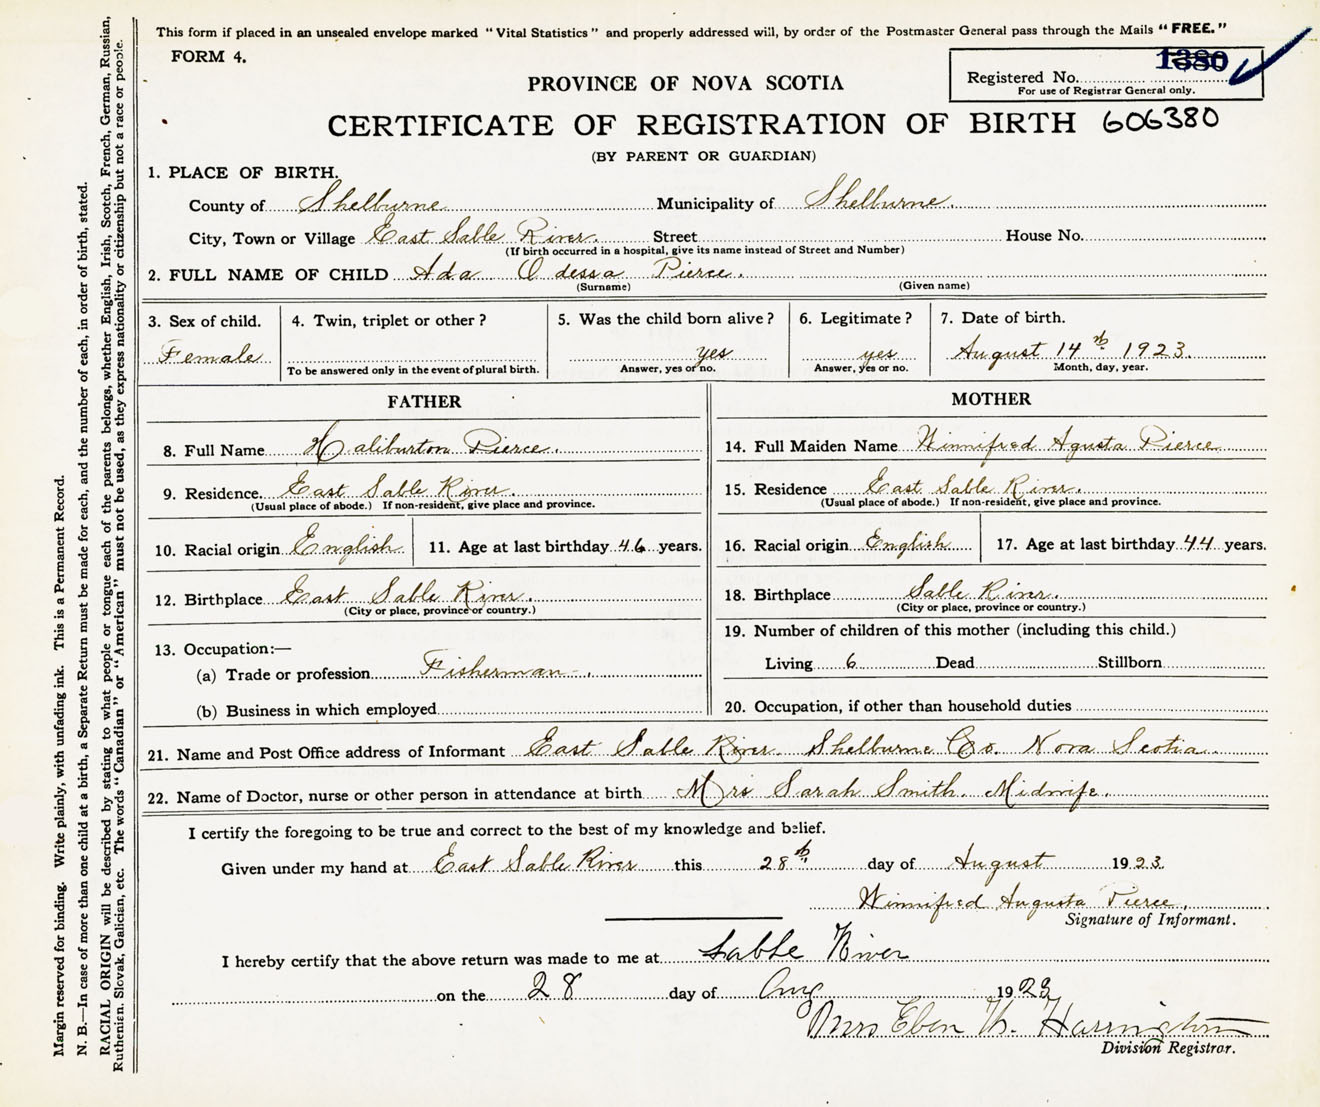 This form if placed in an unsealed envelope marked "Vital Statistics" and properly addressed will, by order of the Postmaster General pass through the Mails "FREE."
FORM 4.
1380
Registered No.
For use of Registrar General only.
PROVINCE OF NOVA SCOTIA
CERTIFICATE OF REGISTRATION OF BIRTH 606380
(BY PARENT OR GUARDIAN)
1. PLACE OF BIRTH.
County of Shelburne Municipality of Shelburne.
City, Town or Village East Sable River. Street House No.
(If birth occurred in a hospital, give its name instead of Street and Number)
2. FULL NAME OF CHILD Ada Odessa Pierce.
(Surname) (Given name)
3. Sex of child. 4. Twin, triplet or other? 5. Was the child born alive? 6. Legitimate? 7. Date of birth.
Female yes yes August 14th 1923.
To be answered only in the event of plural birth. Answer, yes or no. Answer, yes or no. Month, day, year.
FATHER
8. Full Name Haliburton Pierce.
9. Residence. East Sable River.
(Usual place of abode.) If non-resident, give place and province.
10. Racial origin English 11. Age at last birthday 46 years.
12. Birthplace East Sable River.
(City or place, province or country.)
13. Occupation:—
(a) Trade or profession Fisherman.
(b) Business in which employed
MOTHER
14. Full Maiden Name Winnifred Agusta Pierce
15. Residence East Sable River.
(Usual place of abode.) If non-resident, give place and province.
16. Racial origin English 17. Age at last birthday 44 years.
18. Birthplace Sable River.
(City or place, province or country.)
19. Number of children of this mother (including this child.)
Living 6 Dead Stillborn
20. Occupation, if other than household duties
21. Name and Post Office address of Informant East Sable River. Shelburne Co. Nova Scotia.
22. Name of Doctor, nurse or other person in attendance at birth Mrs Sarah Smith. Midwife.
I certify the foregoing to be true and correct to the best of my knowledge and belief.
Given under my hand at East Sable River this 28th day of August 1923.
Winnifred Augusta Pierce,
Signature of Informant.
I hereby certify that the above return was made to me at Sable River
on the 28 day of Aug 1923
Mrs Eben Harrington
Division Registrar.
Margin reserved for binding. Write plainly, with unfading ink. This is a Permanent Record.
N. B.—In case of more than one child at a birth, a Separate Return must be made for each, and the number of each, in order of birth, stated.
RACIAL ORIGIN will be described by stating to what people or tongue each of the parents belongs, whether English, Irish, Scotch, French, German, Russian,
Ruthenien. Slovak, Galician, etc. The words "Canadian" or "American" must not be used, as they express nationality or citizenship but not a race or people.